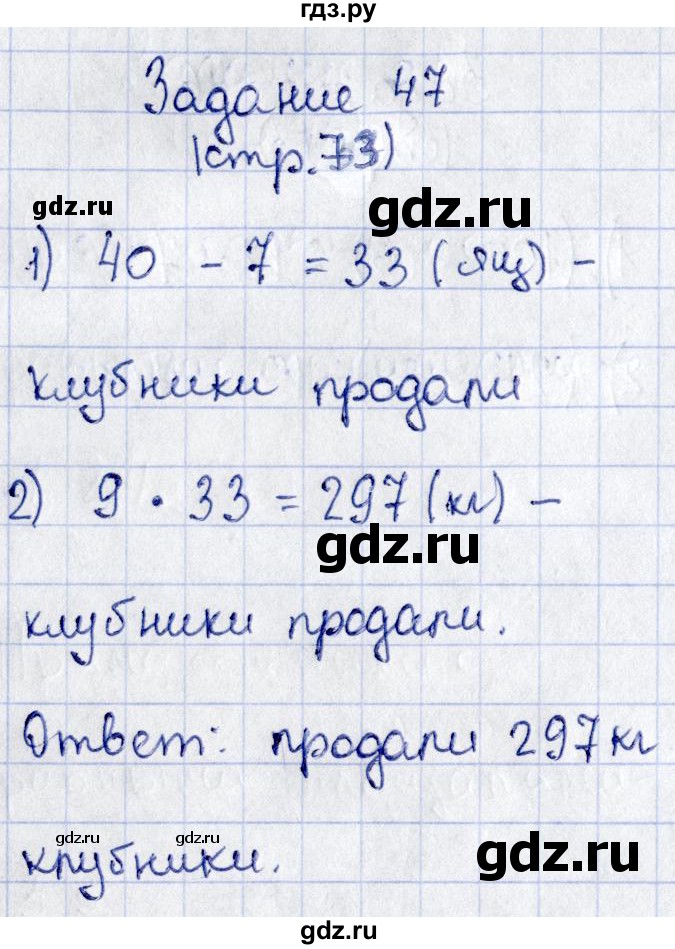 гдз.ру
Задание 47
(стр. 73)
gdz.ru
gdz.ru
1) 40 - 7 = 33 (ящ) -
клубники продали
2) 9 · 33 = 297 (кг) -
gdz.ru
клубники продали.
Ответ: продали 297 кг
gdz.ru
gdz.ru
gdz.ru
клубники.
gdz.ru